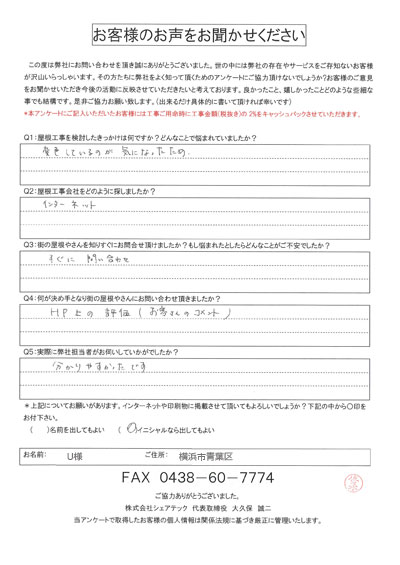 お客様のお声をお聞かせください
この度は弊社にお問い合わせを頂き誠にありがとうございました。世の中には弊社の存在やサービスをご存知ないお客様
が沢山いらっしゃいます。その方たちに弊社をよく知って頂くためのアンケートにご協力頂けないでしょうか?お客様のご意見
をお聞かせいただき今後の活動に反映させていただきたいと考えております。良かったこと、嬉しかったことどのような些細な
事でも結構です。是非ご協力お願い致します。(出来るだけ具体的に書いて頂ければ幸いです)
*本アンケートにご記入いただいたお客様には工事ご用命時に工事金額(税抜き)の2%をキャッシュバックさせていただきます。
Q1:屋根工事を検討したきっかけは何ですか?どんなことで悩まれていましたか?
変色しているのが気になったため.
Q2:屋根工事会社をどのように探しましたか?
インターネット
Q3:街の屋根やさんを知りすぐにお問合せ頂けましたか?もし悩まれたとしたらどんなことがご不安でしたか?
すぐに 問い合わせ
Q4:何が決め手となり街の屋根やさんにお問い合わせ頂きましたか?
HP上の評価(お客さんのコメント)
Q5:実際に弊社担当者がお伺いしていかがでしたか?
分かりやすかったです
*上記についてお願いがあります。インターネットや印刷物に掲載させて頂いてもよろしいでしょうか?下記の中から〇印を
をお付下さい。
( )名前を出してもよい (〇)イニシャルなら出してもよい
お名前: U様 ご住所: 横浜市青葉区
FAX 0438-60-7774
ご協力ありがとうございました。
株式会社シェアテック 代表取締役 大久保 誠二
当アンケートで取得したお客様の個人情報は関係法規に基づき厳正に管理いたします。